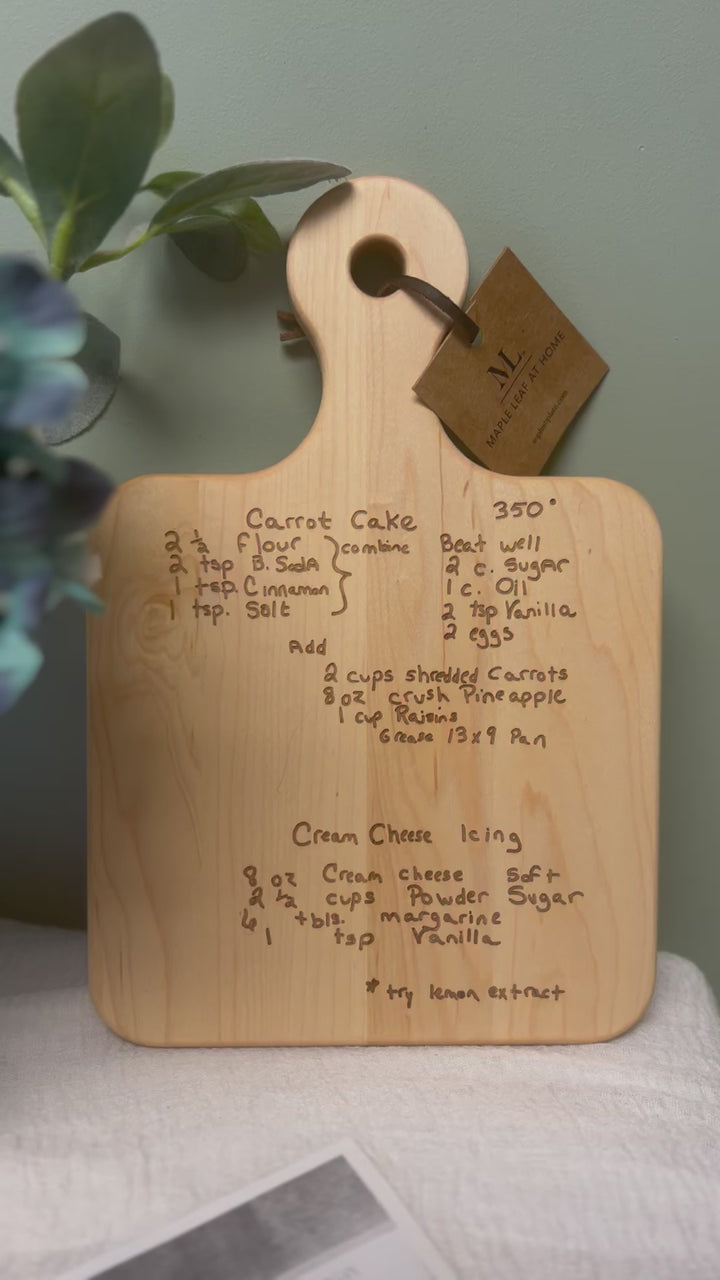 ML.
MAPLE LEAF AT HOME
Carrot Cake 350°
2 ½ flour
2 tsp B. SodA
1 tsp. Cinnamon
1 tsp. Salt
combine
Beat well
2 c. SugAr
1 c. Oil
2 tsp Vanilla
2 eggs
Add
2 cups shredded Carrots
8 oz crush Pineapple
1 cup Raisins
Grease 13x9 Pan
Cream Cheese Icing
8 oz Cream cheese Soft
2 ½ cups Powder Sugar
6 tbls. margarine
1 tsp Vanilla
* try lemon extract